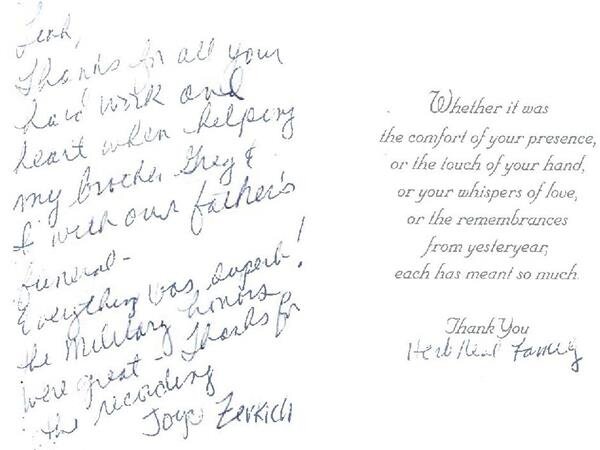 Leah,
Thanks for all your
hard work and
heart when helping
my brother Greg &
I with our father's
funeral-
Everything was superb!
the Military honors
were great - Thanks for
the recording
Joyce
Whether it was
the comfort of your presence,
or the touch of your hand,
or your whispers of love,
or the remembrances
from yesteryear,
each has meant so much.
Thank You
Herb Family